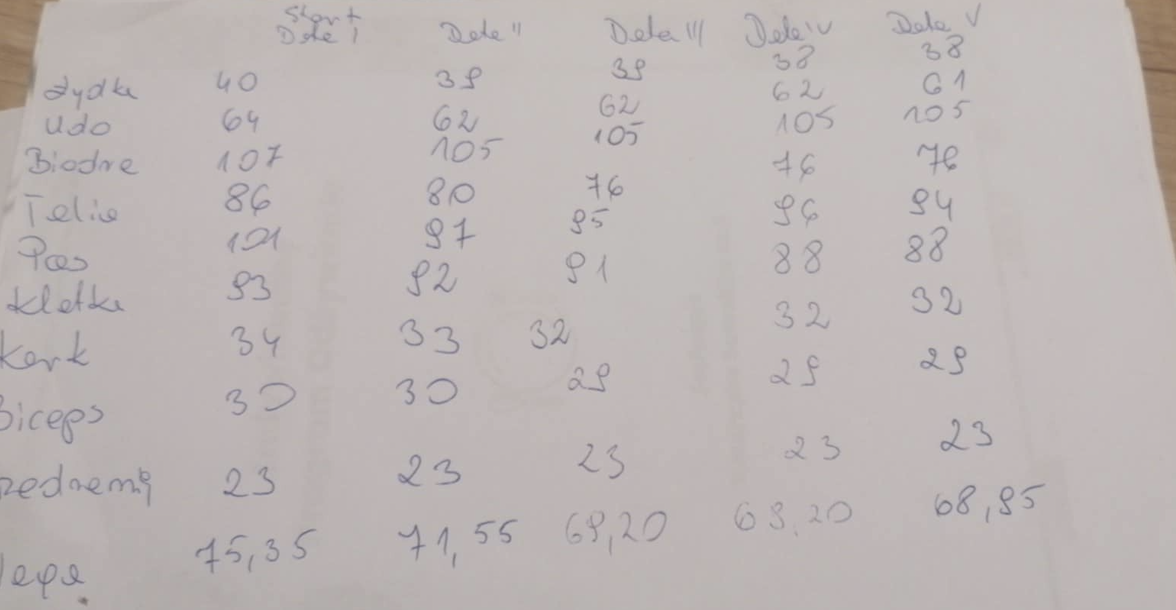 Start
Data I Data II Data III Data IV Data V
Łydka 40 39 39 38 38
Udo 64 62 62 62 61
Biodra 107 105 105 105 105
Talia 86 80 76 76 76
Pas 101 97 95 96 94
Klatka 93 92 91 88 88
Kark 34 33 32 32 32
Biceps 30 30 29 29 29
zedramię 23 23 23 23 23
75,35 71,55 69,20 69,20 68,95